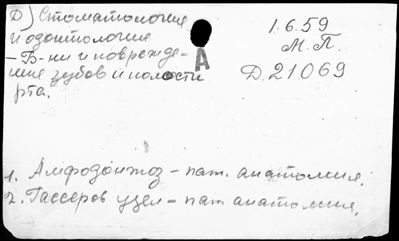 Д) Стоматология
и одонтология
– Б-ни и поврежде-
ния зубов и полости
рта.
А
1.6.59
М.П.
Д.21069
1. Амфодонтоз – пат. анатомия.
2. Гассеров узел – пат. анатомия.